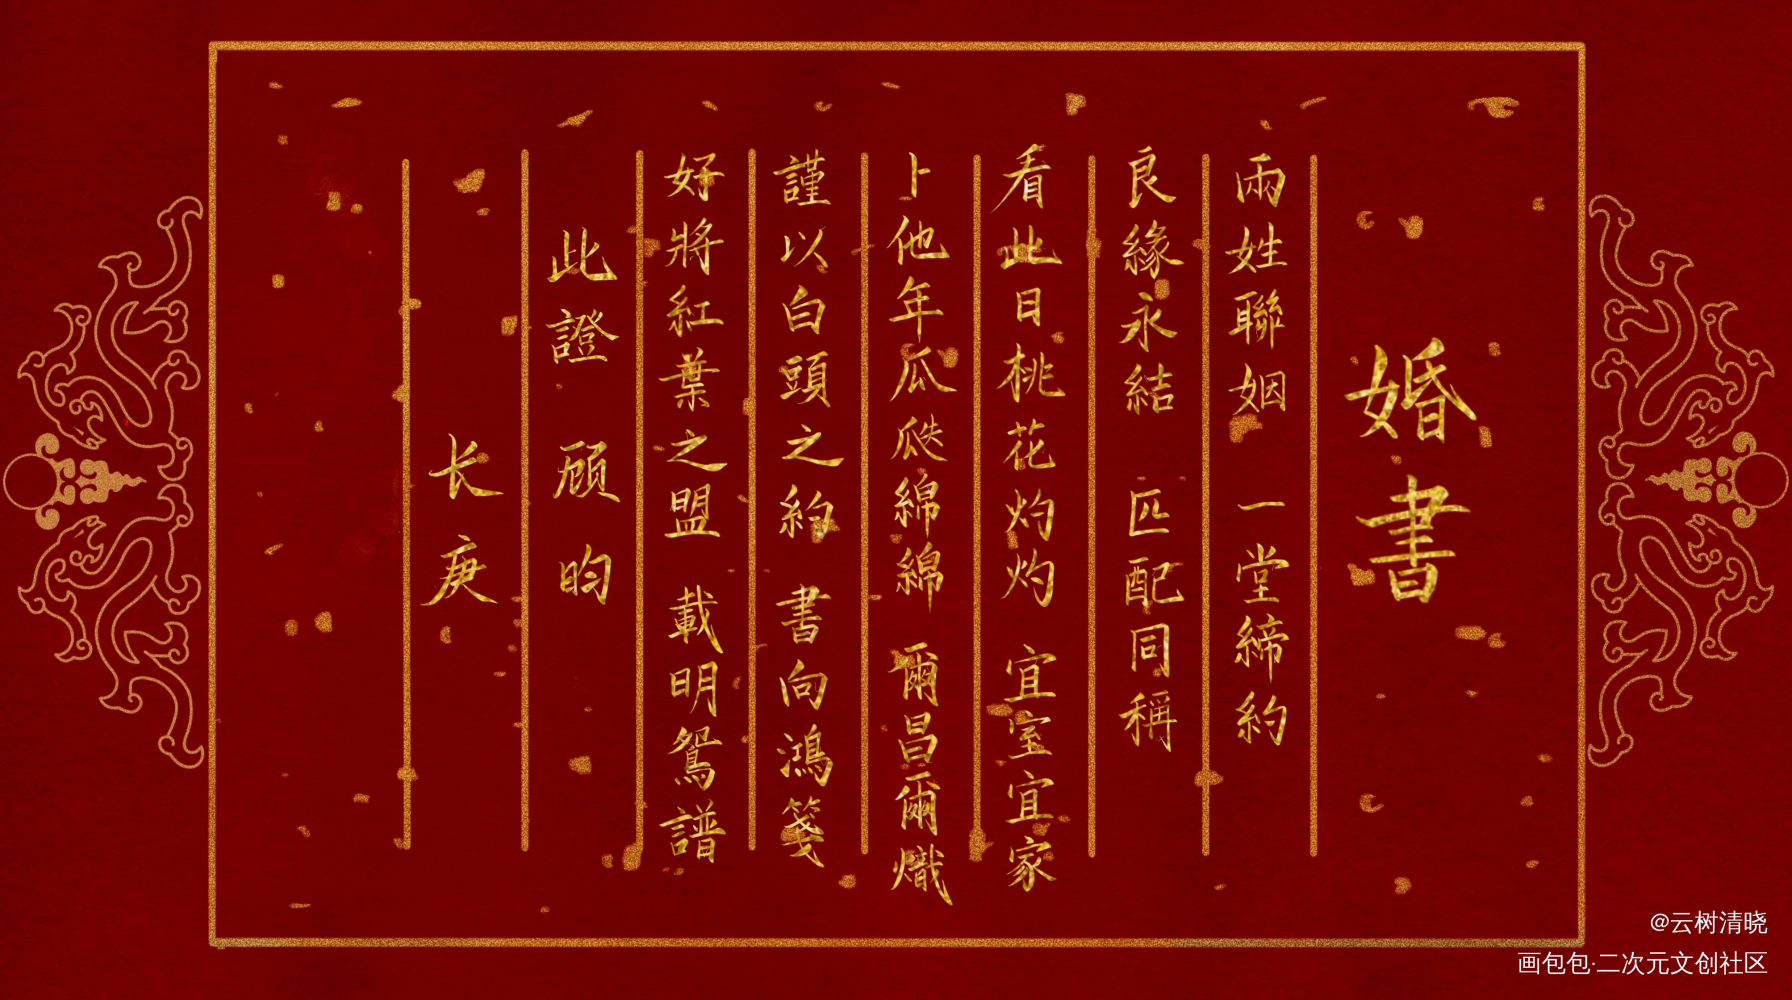 婚書
兩姓聯姻 一堂締約
良緣永結 匹配同稱
看此日桃花灼灼 宜室宜家
卜他年瓜瓞綿綿 爾昌爾熾
謹以白頭之約 書向鴻箋
好將紅葉之盟 載明鴛譜
此證 顾昀
长庚
@云树清晓
画包包·二次元文创社区